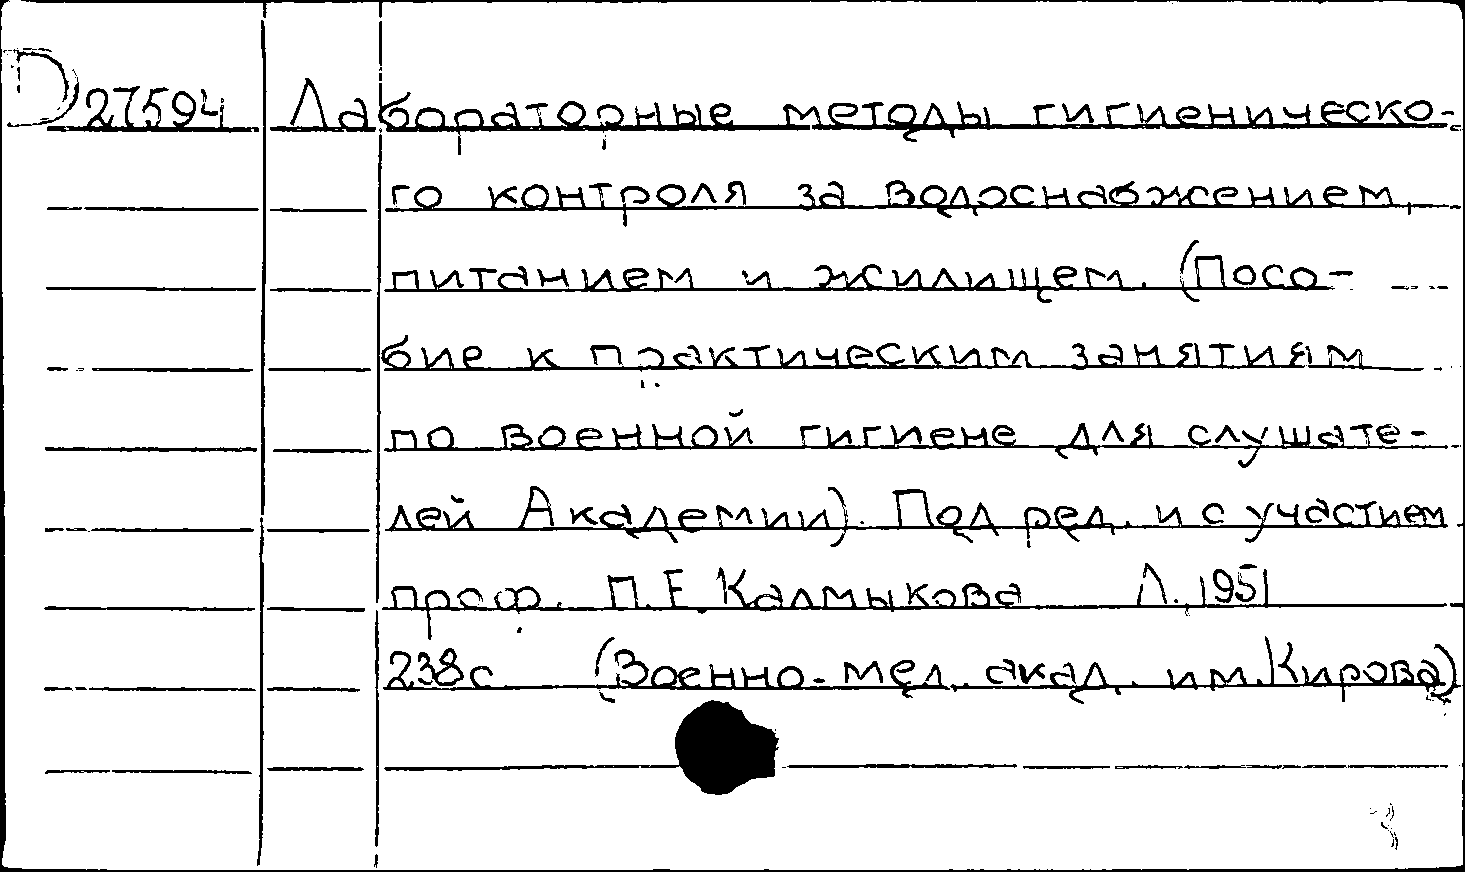 D 27594 Лабораторные методы гигиеническо-
го контроля за водоснабжением,
питанием и жилищем. (Посо-
бие к практическим занятиям
по военной гигиене для слушате-
лей Академии). Под ред. и с участием
проф. П.Е. Калмыкова Л., 1951
238с (Военно-мед. акад. им. Кирова)